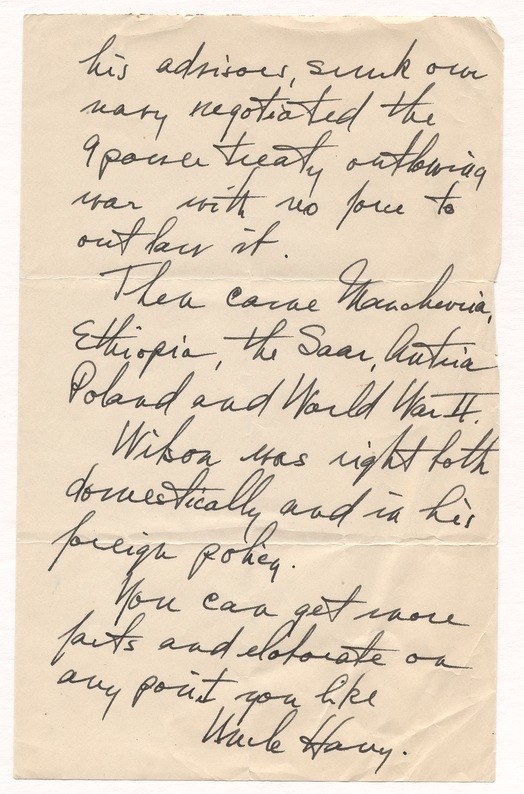 his advisors, sunk our
navy negotiated the
9 power treaty outlawing
war with no force to
outlaw it.
Then came Manchuria,
Ethiopia, the Saar, Autria
Poland and World War II.
Wilson was right both
domestically and in his
foreign policy.
You can get more
facts and elaborate on
any point you like
Uncle Harry.